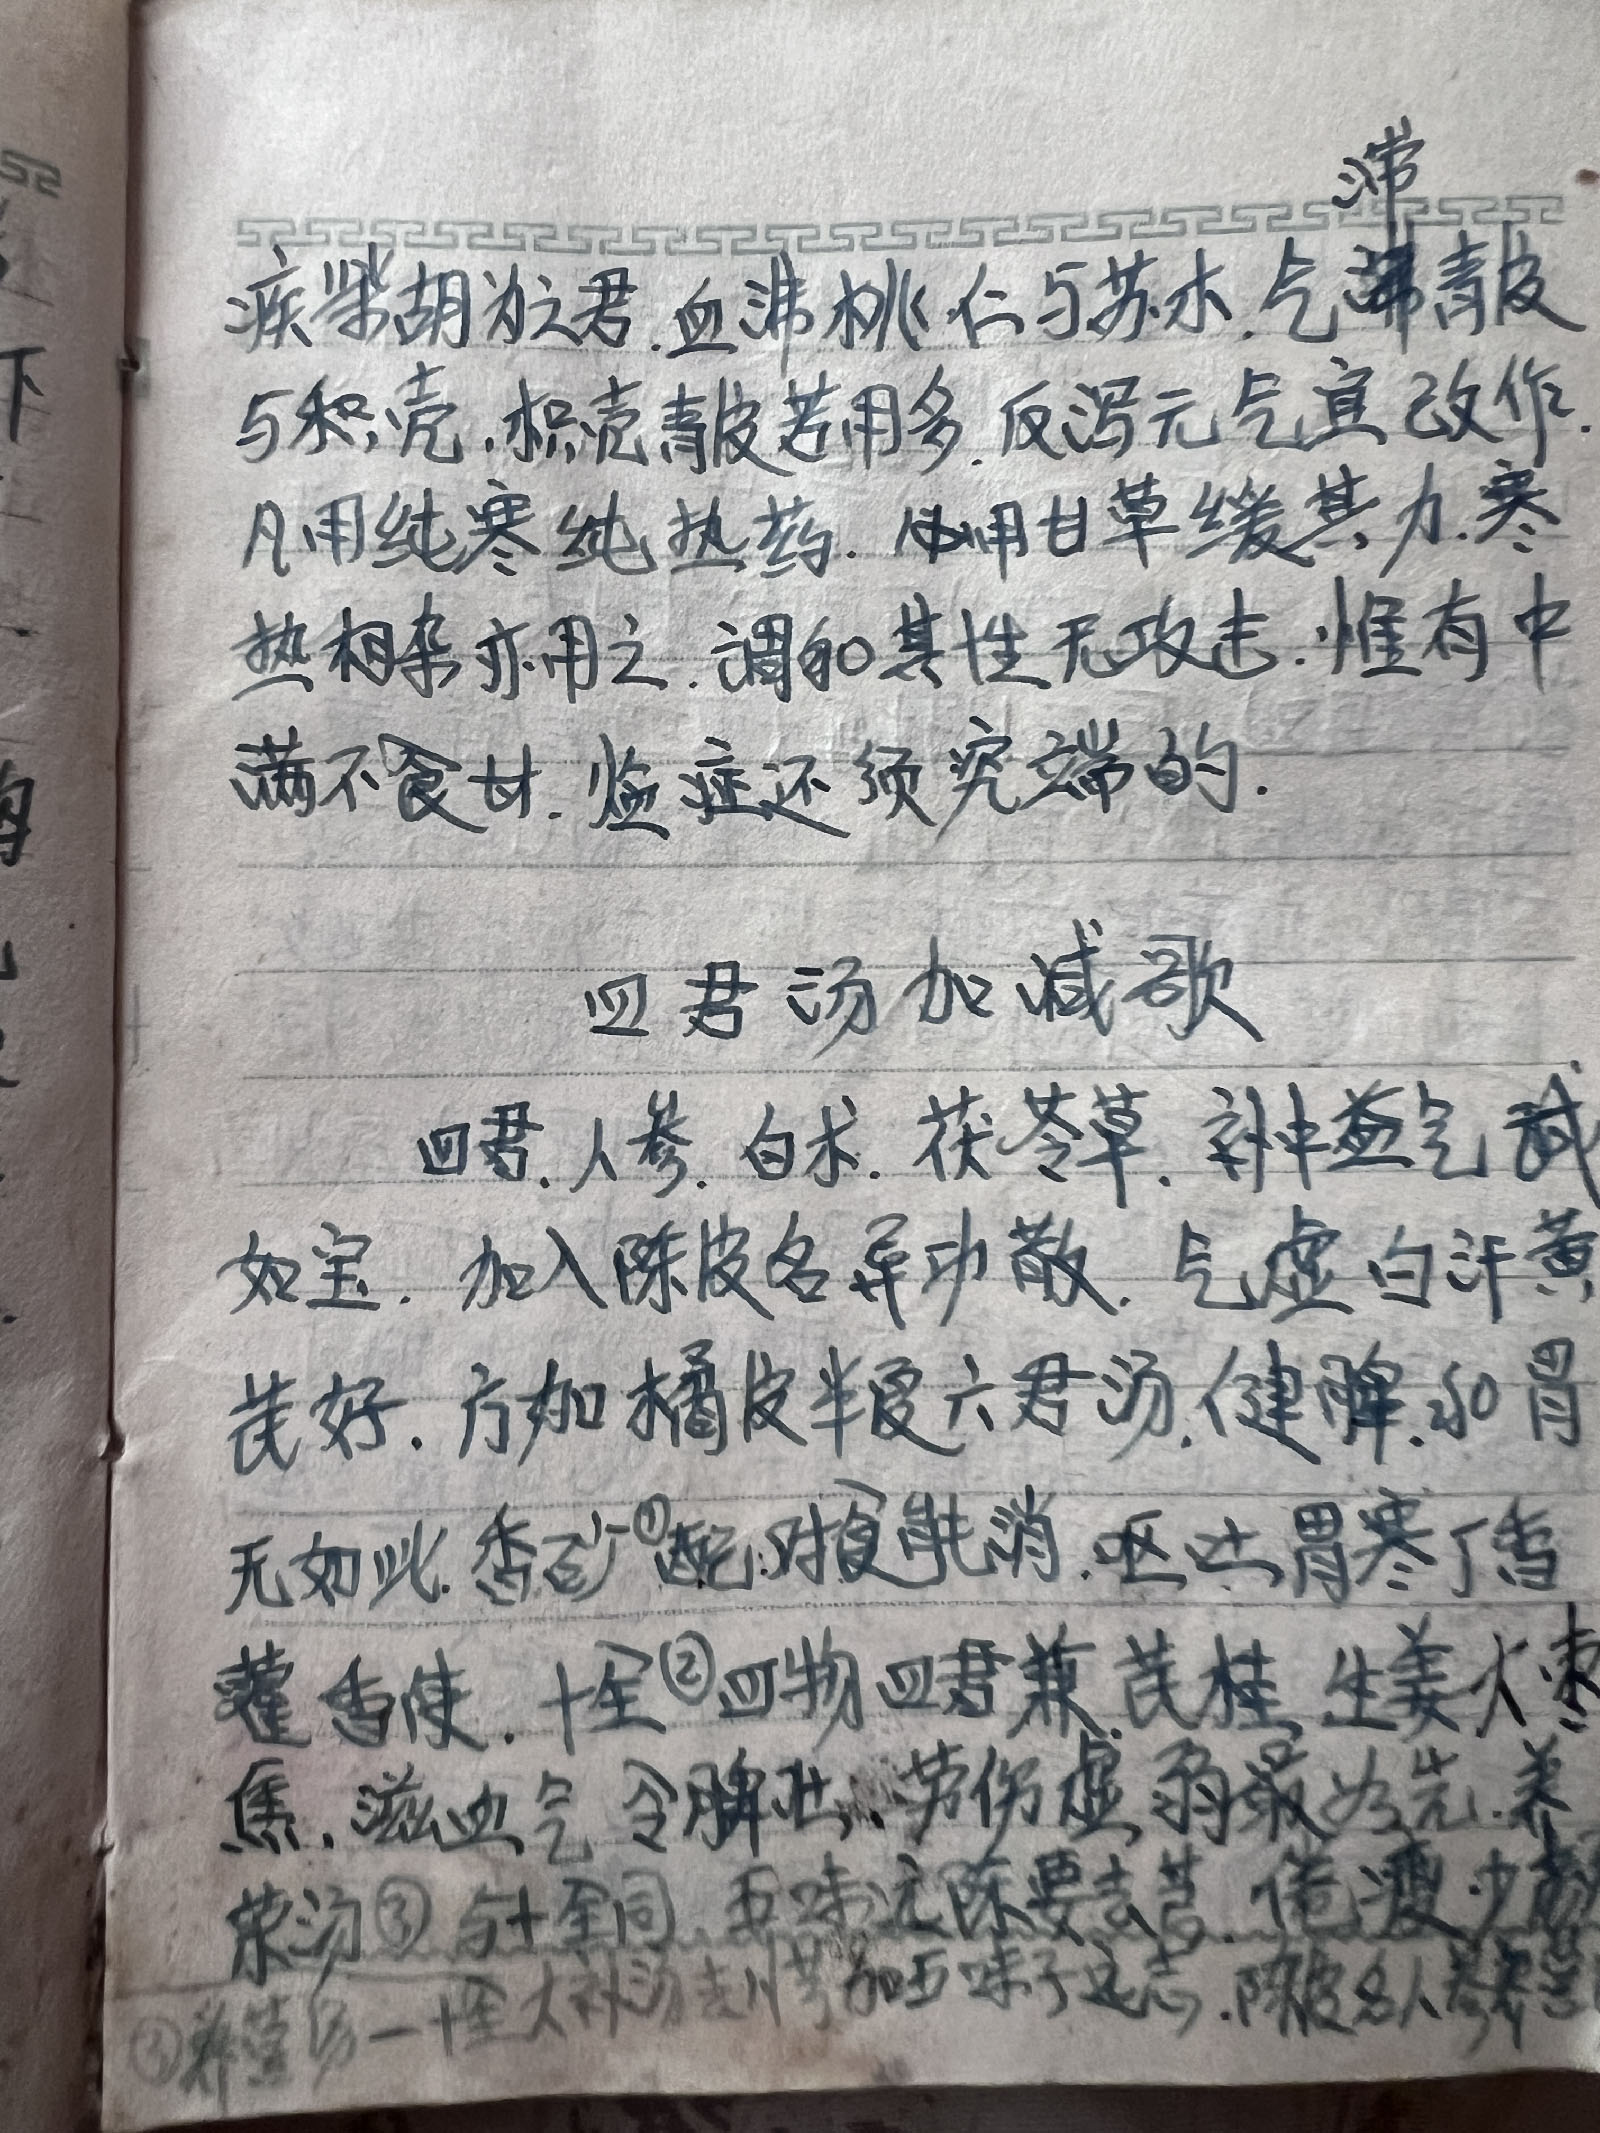 滞
疾柴胡为之君.血沸桃仁与苏木.气滞青皮
与枳壳.枳壳青皮若用多.反泻元气宜改作.
凡用纯寒纯热药.必用甘草缓其力.寒
热相杂亦用之.调和其性无攻击.惟有中
满不食甘.临症还须究端的.
四君汤加减歌
四君.人参.白术.茯苓草.补中益气诚
如宝.加入陈皮名异功散.气虚白汗黄
芪好.方如橘皮半夏六君汤.健脾.和胃
无如此.香砂①配.对食能消.呕吐胃寒丁香
藿香使.十全②四物四君兼.芪桂生姜大枣
焦.滋血气令脾壮.劳伤虚弱最为先.养
荣汤③与十全同.五味远陈要去芎.倦瘦少
③养荣汤一十全大补汤去川芎加五味子远志.陈皮名人参养